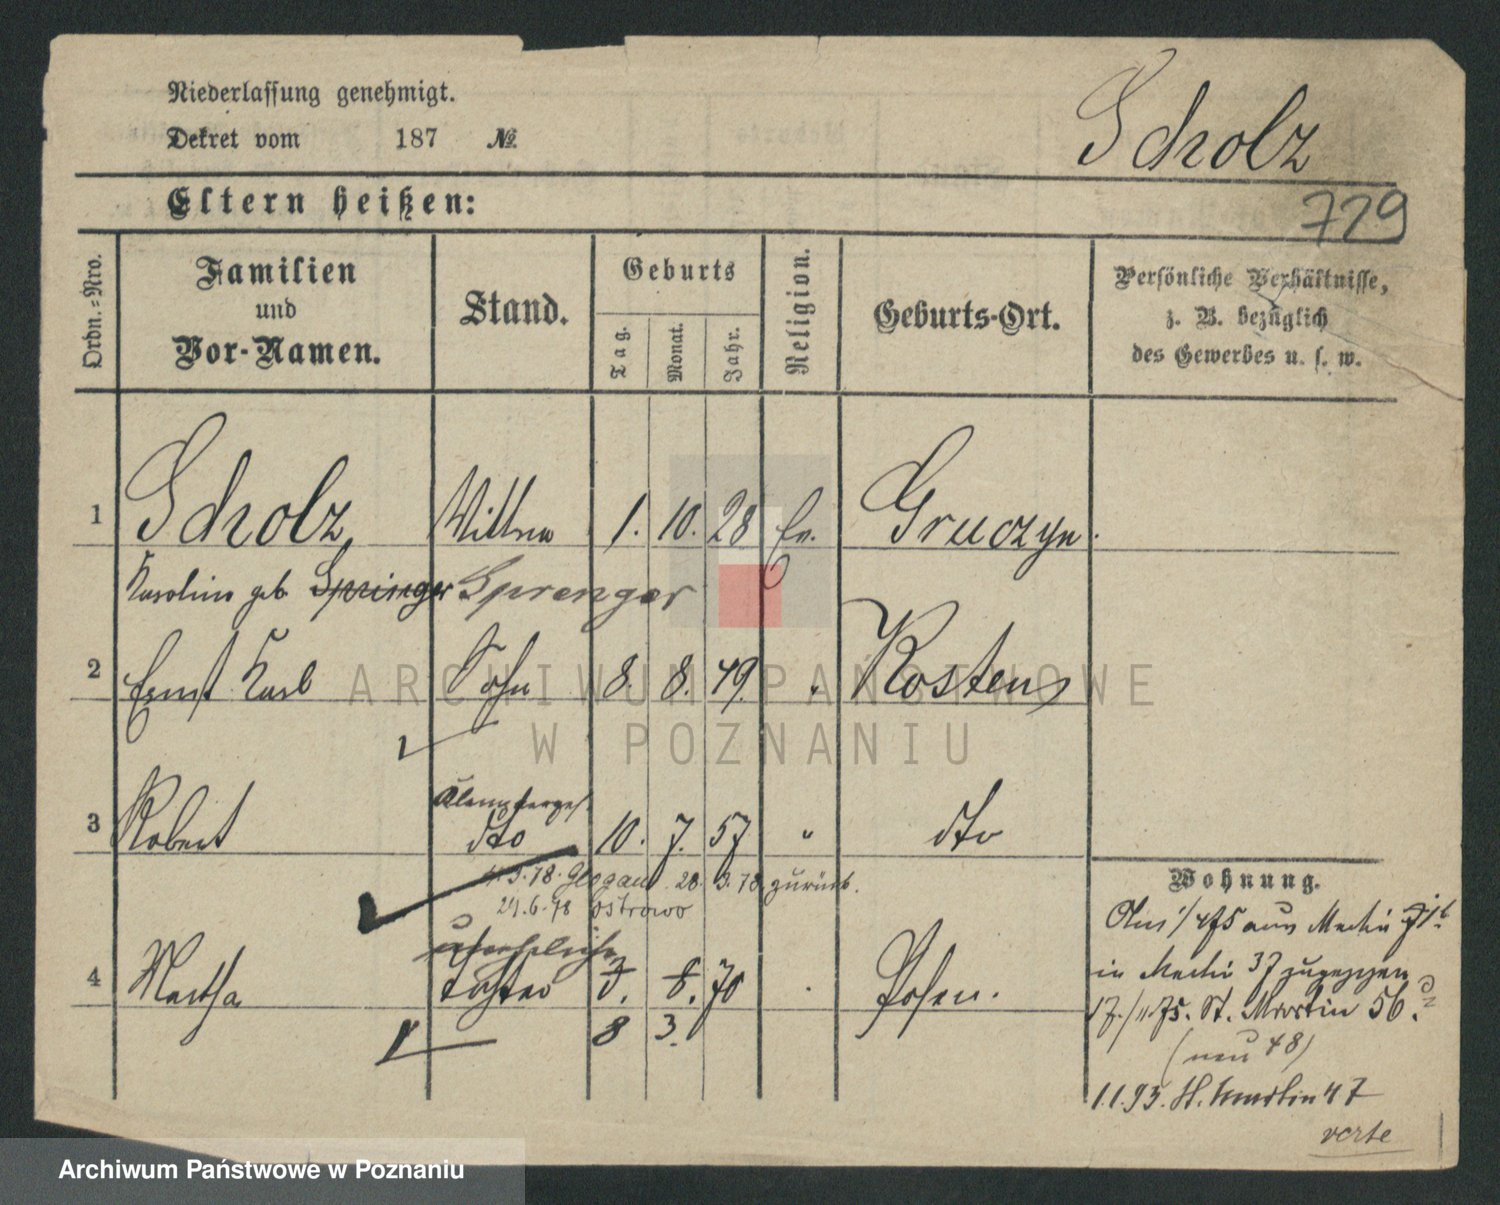 Niederlassung genehmigt.
Dekret vom 187 №
Scholz
729
Eltern heißen:
Ordn.-Nro.
Familien und Vor-Namen.
Stand.
Geburts
Tag.
Monat.
Jahr.
Religion.
Geburts-Ort.
Persönliche Verhältnisse,
z. B. bezüglich
des Gewerbes u. s. w.
1 Scholz, Wittwe 1. 10. 28 Ev. Gruczyn.
Karoline geb. Springer Sprenger
2 Ernst Karl Sohn 8. 8. 49. Kosten
Klempnerges.
3 Robert dto 10. 7. 57 " dto
3.78. Glogau 28. 3. 78 zurück.
24.6.78 Ostrowo
uneheliche
4 Martha Tochter 7. 8. 70 Posen.
8 3.
Wohnung.
1/4 75 aus Martin
in Martin 37 zugezogen
17./11 75. St. Martin 56.
(neu 48)
1.1.93. St. Martin 47
verte
ARCHIWUM PAŃSTWOWE
W POZNANIU
Archiwum Państwowe w Poznaniu